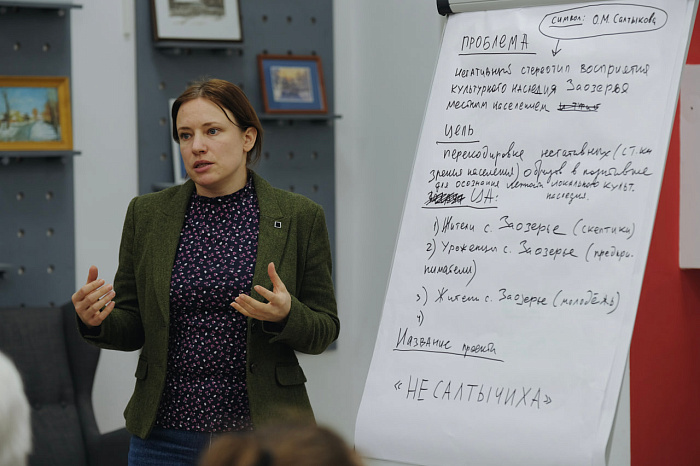 символ: О.М. Салтыкова
ПРОБЛЕМА
негативный стереотип восприятия
культурного наследия Заозерья
местным населением
ЦЕЛЬ
перекодировка негативных (с т. ки
зрения населения) образов в позитивные
для осознания ценности локального культ.
ЦА: наследия.
1) Жители с. Заозерье (скептики)
2) Уроженцы с. Заозерье (предпри-
ниматели)
3) Жители с. Заозерье (молодёжь)
4)
Название проекта
«НЕСАЛТЫЧИХА»